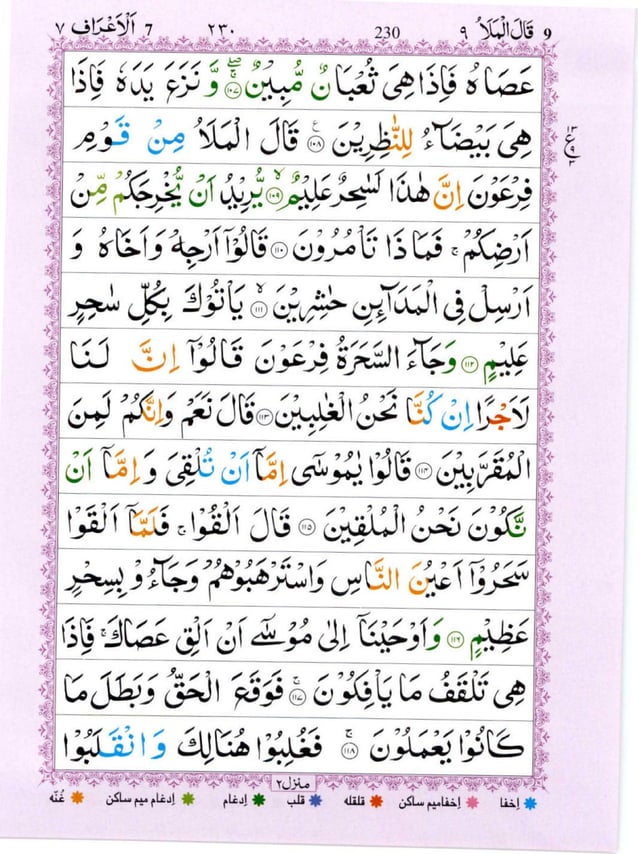 9 قَالَ الْمَلَاُ ٩ 230 ٢٣٠ 7 اَلْاَعْرَاف ٧
عَصَاهُ فَاِذَا هِىَ ثُعْبَانٌ مُّبِيْنٌ ۝١٠٧ وَّ نَزَعَ يَدَهٗ فَاِذَا
هِىَ بَيْضَآءُ لِلنّٰظِرِيْنَ ۝١٠٨ قَالَ الْمَلَاُ مِنْ قَوْمِ
فِرْعَوْنَ اِنَّ هٰذَا لَسٰحِرٌ عَلِيْمٌ ۝١٠٩ يُّرِيْدُ اَنْ يُّخْرِجَكُمْ مِّنْ
اَرْضِكُمْ ۚ فَمَا ذَا تَاْمُرُوْنَ ۝١١٠ قَالُوْٓا اَرْجِهْ وَ اَخَاهُ وَ
اَرْسِلْ فِى الْمَدَآئِنِ حٰشِرِيْنَ ۝١١١ يَاْتُوْكَ بِكُلِّ سٰحِرٍ
عَلِيْمٍ ۝١١٢ وَجَآءَ السَّحَرَةُ فِرْعَوْنَ قَالُوْٓا اِنَّ لَنَا
لَاَجْرًا اِنْ كُنَّا نَحْنُ الْغٰلِبِيْنَ ۝١١٣ قَالَ نَعَمْ وَاِنَّكُمْ لَمِنَ
الْمُقَرَّبِيْنَ ۝١١٤ قَالُوْا يٰمُوْسٰٓى اِمَّآ اَنْ تُلْقِىَ وَ اِمَّآ اَنْ
نَّكُوْنَ نَحْنُ الْمُلْقِيْنَ ۝١١٥ قَالَ اَلْقُوْا ۚ فَلَمَّآ اَلْقَوْا
سَحَرُوْٓا اَعْيُنَ النَّاسِ وَاسْتَرْهَبُوْهُمْ وَجَآءُوْ بِسِحْرٍ
عَظِيْمٍ ۝١١٦ وَاَوْحَيْنَآ اِلٰى مُوْسٰٓى اَنْ اَلْقِ عَصَاكَ ۚ فَاِذَا
هِىَ تَلْقَفُ مَا يَاْفِكُوْنَ ۝١١٧ فَوَقَعَ الْحَقُّ وَبَطَلَ مَا
كَانُوْا يَعْمَلُوْنَ ۝١١٨ فَغُلِبُوْا هُنَالِكَ وَ انْقَلَبُوْا
منزل ٢
اِخفا اِخفامیم ساکن قلقله قلب اِدغام اِدغام میم ساکن غُنّه